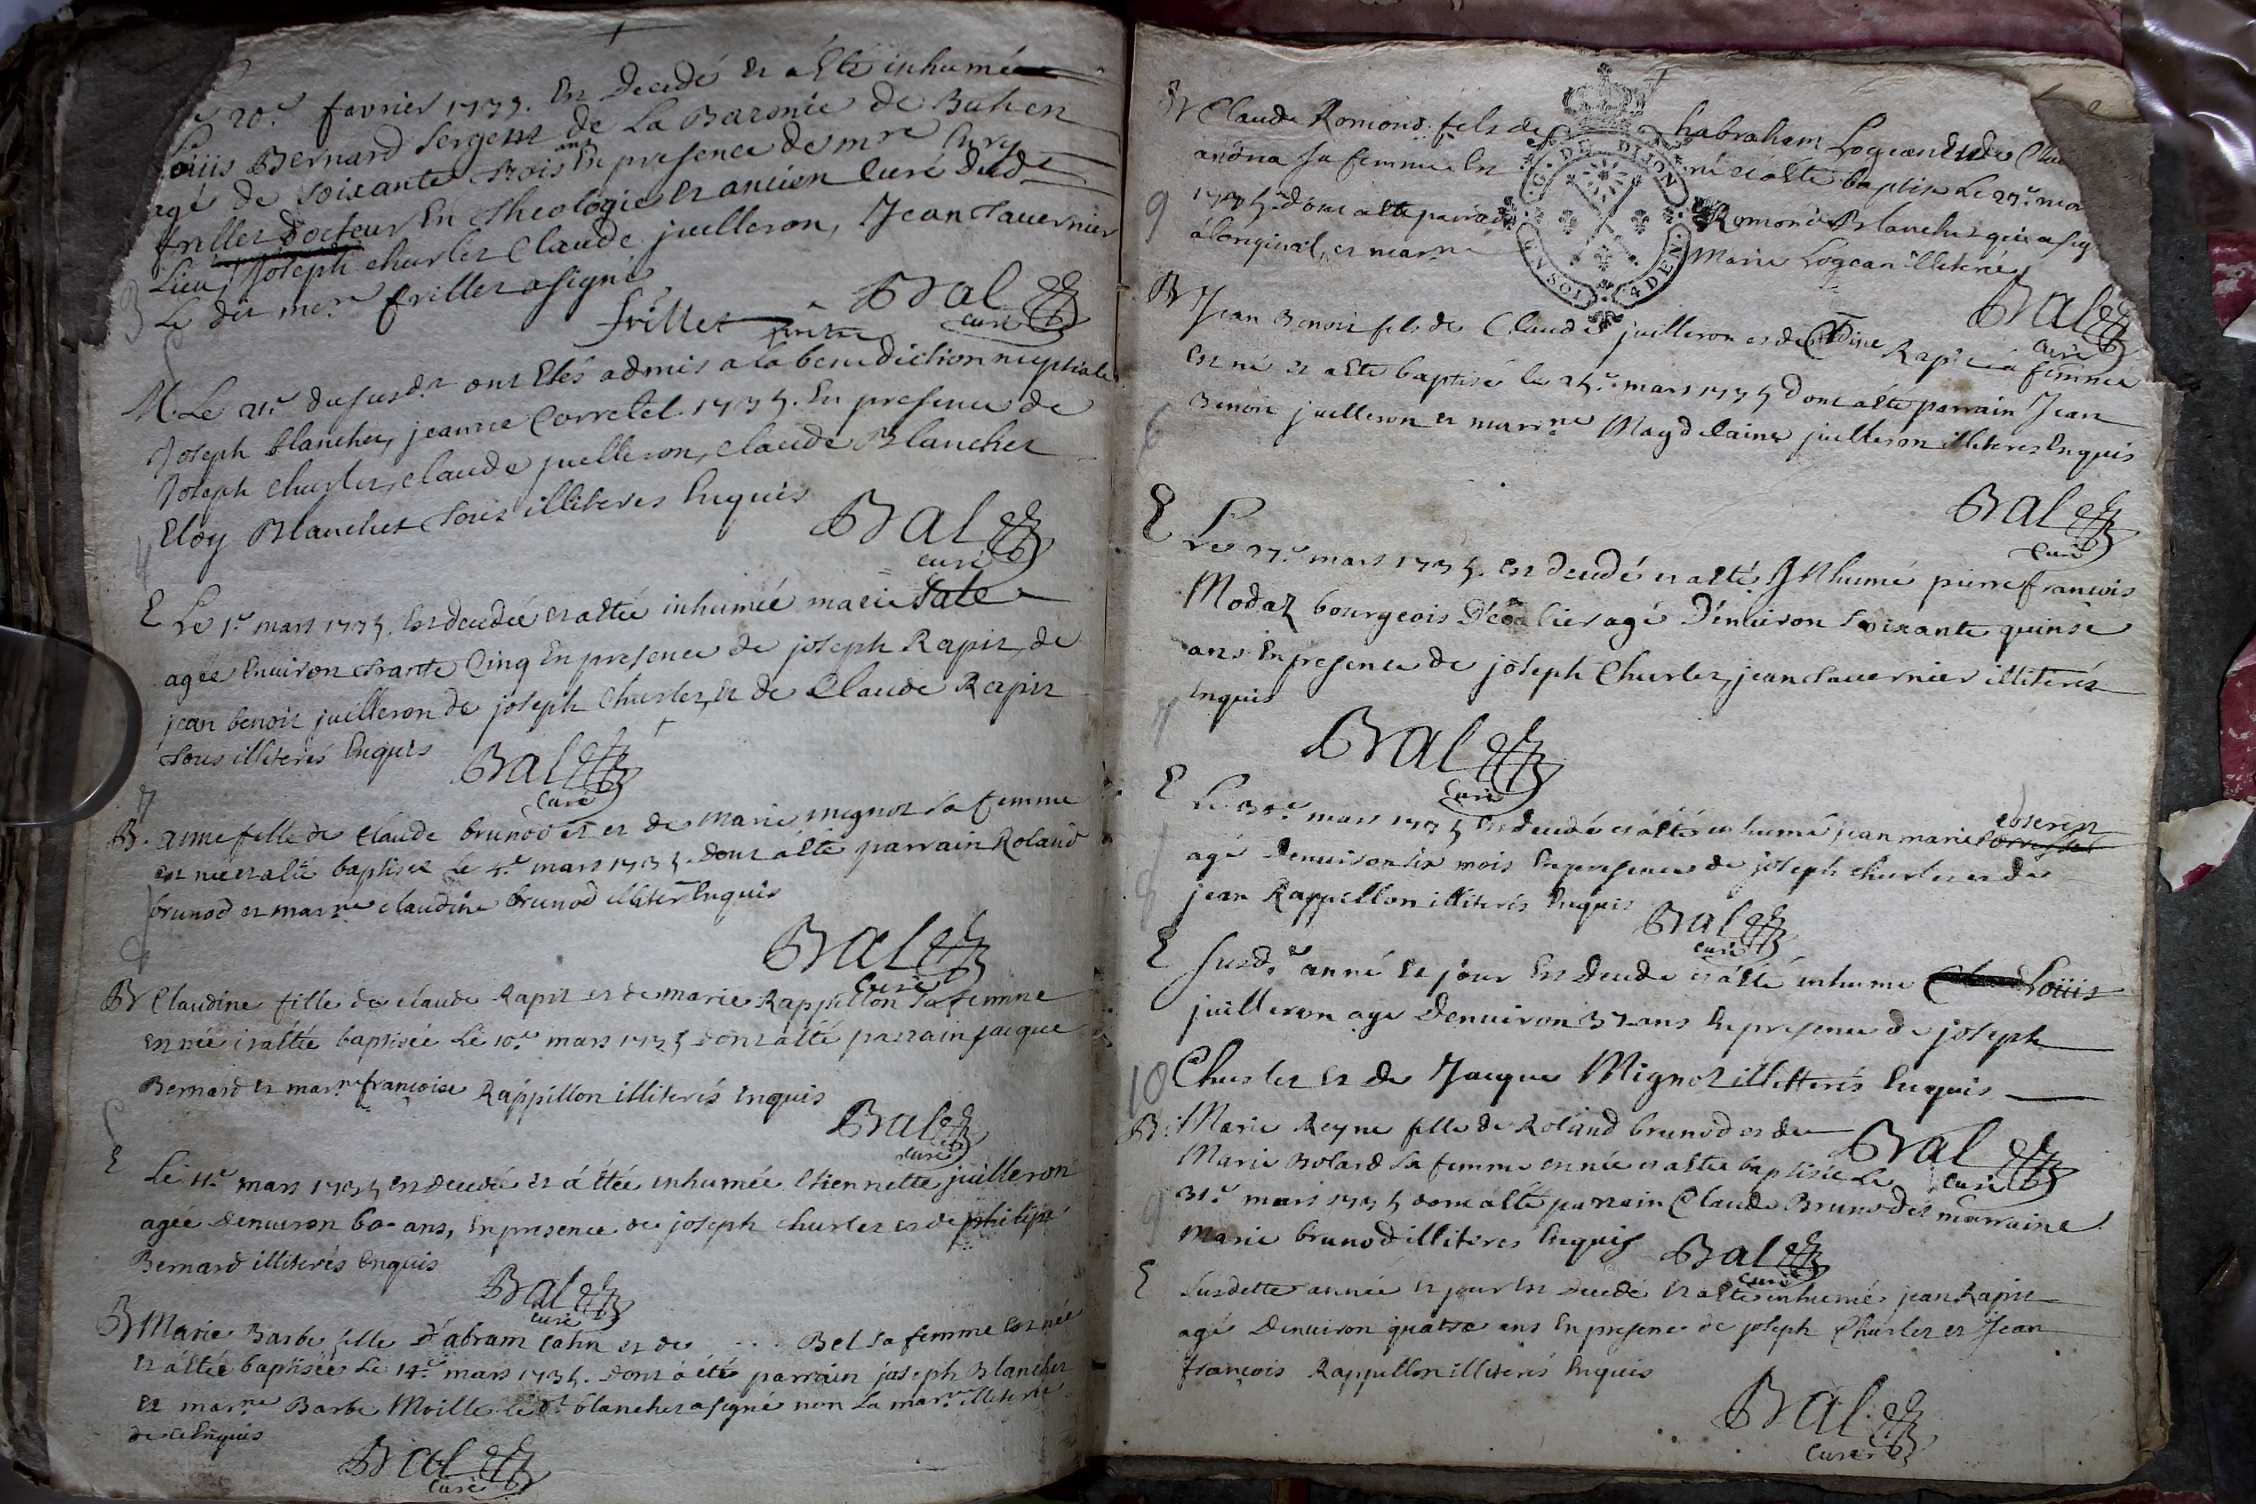 20.e fevrier 1735. Est Decedé et a Eté inhumé
Louis Bernard Sergent de La Baronie de
agé de soixante trois ans En presence de mre
frillet Docteur En Theologie et ancien Curé dud.
Lieu, Joseph churlet Claude juilleron, Jean tavernier
Le dit mre frillet a signé
frillet
Bal
curé
M. Le 21.e dususd.t ont Etés admis a la benediction nuptiale
Joseph blanchet, jeanne Corretel 1735. En presence de
Joseph churlet, claude juilleron, claude Blanchet
Eloy Blanchet tous illiteres Enquis
Bal
curé
E Le 1.r mars 1735. Est decedée et a Eté inhumée marie
agée Environ trante Cinq En presence de joseph Rapin, de
jean benoit juilleron de joseph Churlet, et de Claude Rapin
tous illiterés Enquis
Bal
Curé
B. anne fille de claude brunod et de marie mignot sa femme
est née et a Eté baptisée Le 4.e mars 1735. dont a Eté parrain Roland
brunod et marr.ne claudine brunod illiter Enquis
Bal
Curé
B Claudine fille de claude Rapin et de marie Rappillon sa femme
est née et a Eté baptisée Le 10.e mars 1735 dont a Eté parrain jacque
Bernard et marr.ne françoise Rappillon illiterés Enquis
Bal
curé
E
Le 11.e mars 1735 est decedée et a Etée inhumée Etiennette juilleron
agée Denviron 60 ans, En presence de joseph churlet et de philipe
Bernard illiterés Enquis
Bal
curé
B Marie Barbe fille d'abram cahn et de .... Bel sa femme Est née
et a Etée baptisée Le 14.e mars 1735. dont a été parrain joseph Blanchet
et marr.ne Barbe Moille le d.t blanchet a signé non La marr.ne illiterée
de ce Enquis
Bal
Curé
B Claude Romond fils de habraham Logean et de
sa femme Est né et a Eté baptisé Le 22.e
1735 dont a Eté parrain Romond Blanchet qui a sig
a l'original, et marr.ne Marie Logean illiterée
G. DE DIJON
4 DEN.
Bal
Curé
B Jean Benoit fils de Claude juilleron et de Cldine Rapin sa femme
Est né et a Eté baptisé le 25.e mars 1735 dont a Eté parrain Jean
Benoit juilleron et marr.ne Magdelaine juilleron illiteres Enquis
6
Bal
Curé
E Le 27.e mars 1735. Est decedé et a Eté Inhumé pierre françois
Modaz bourgeois agé D'environ soixante quinse
ans En presence de joseph Churlet, jean tavernier illiterés
Enquis
7
Bal
Curé
E Le mars 1735 Est decedé et a Eté inhumé jean marie
agé Denviron six mois En presence de joseph churlet et de
jean Rappillon illiterés Enquis
8
Bal
Curé
E Susd.e anné et jour Est Decedé et a Eté inhumé Loüis
juilleron agé Denviron 32 ans En presence de joseph
Churlet et De Jacque Mignot illitterés Enquis
10
Bal
Curé
B. Marie Reyne fille de Roland brunod et de
Marie Bolard sa femme est née et a Etée baptisée Le
31.e mars 1735 dont a Eté parrain Claude Brunod et marraine
Marie brunod illiteres Enquis
9
Bal
Curé
E Susdette année et jour Est Decedé Et a Eté inhumé jean Rapin
agé Denviron quatre ans En presence de joseph Churlet et Jean
françois Rappillon illiterés Enquis
Bal
Curé